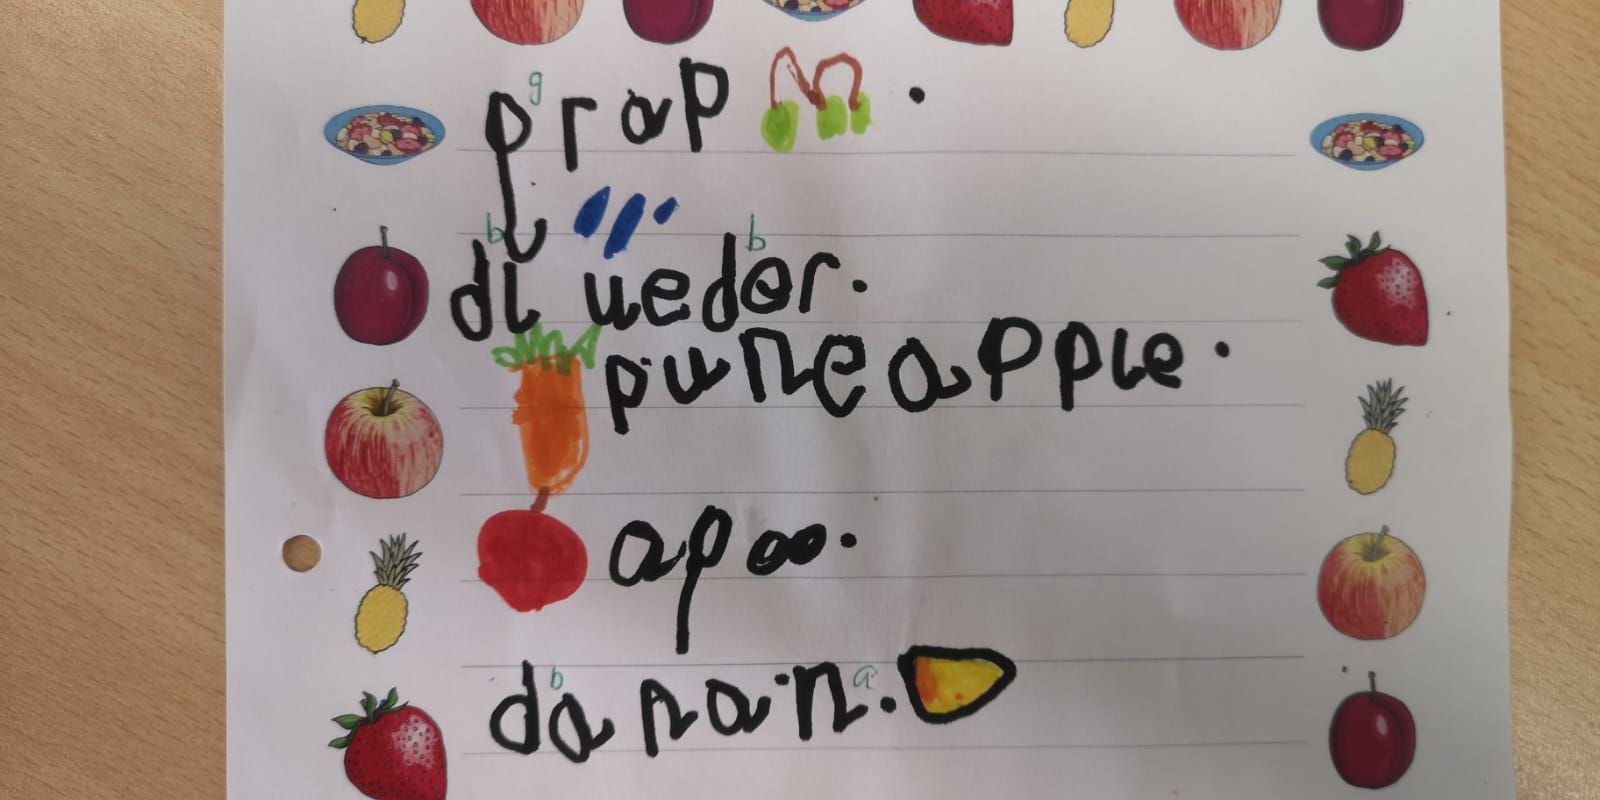 g
prap.
b b
dlueder.
puneapple.
apoo.
b a
danan.